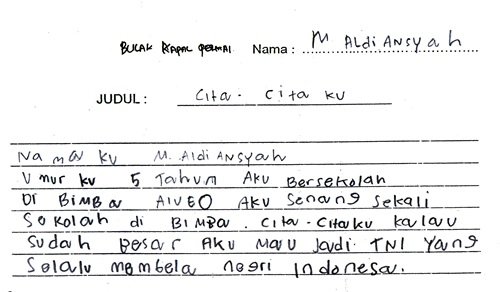 BULAK KAPAL PERMAI Nama : M ALdi ANSyah
JUDUL : Cita - Cita KU
Na ma KU M. ALdi ANSyah
Umur KU 5 Tahun AKU Bersekolah
Di BIMBA AIUEO AKU Senang Sekali
Sekolah di BIMBA . Cita - Citaku kalau
Sudah Besar AKU Mau Jadi TNI Yang
Selalu Membela negri Indonesa.